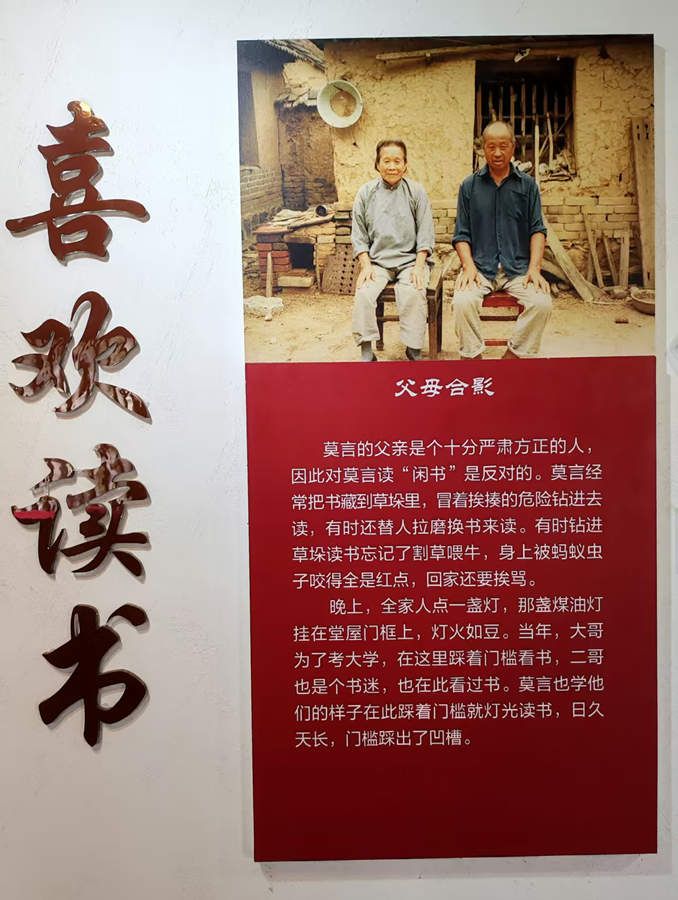 喜欢读书
父母合影
莫言的父亲是个十分严肃方正的人，
因此对莫言读“闲书”是反对的。莫言经
常把书藏到草垛里，冒着挨揍的危险钻进去
读，有时还替人拉磨换书来读。有时钻进
草垛读书忘记了割草喂牛，身上被蚂蚁虫
子咬得全是红点，回家还要挨骂。
晚上，全家人点一盏灯，那盏煤油灯
挂在堂屋门框上，灯火如豆。当年，大哥
为了考大学，在这里踩着门槛看书，二哥
也是个书迷，也在此看过书。莫言也学他
们的样子在此踩着门槛就灯光读书，日久
天长，门槛踩出了凹槽。